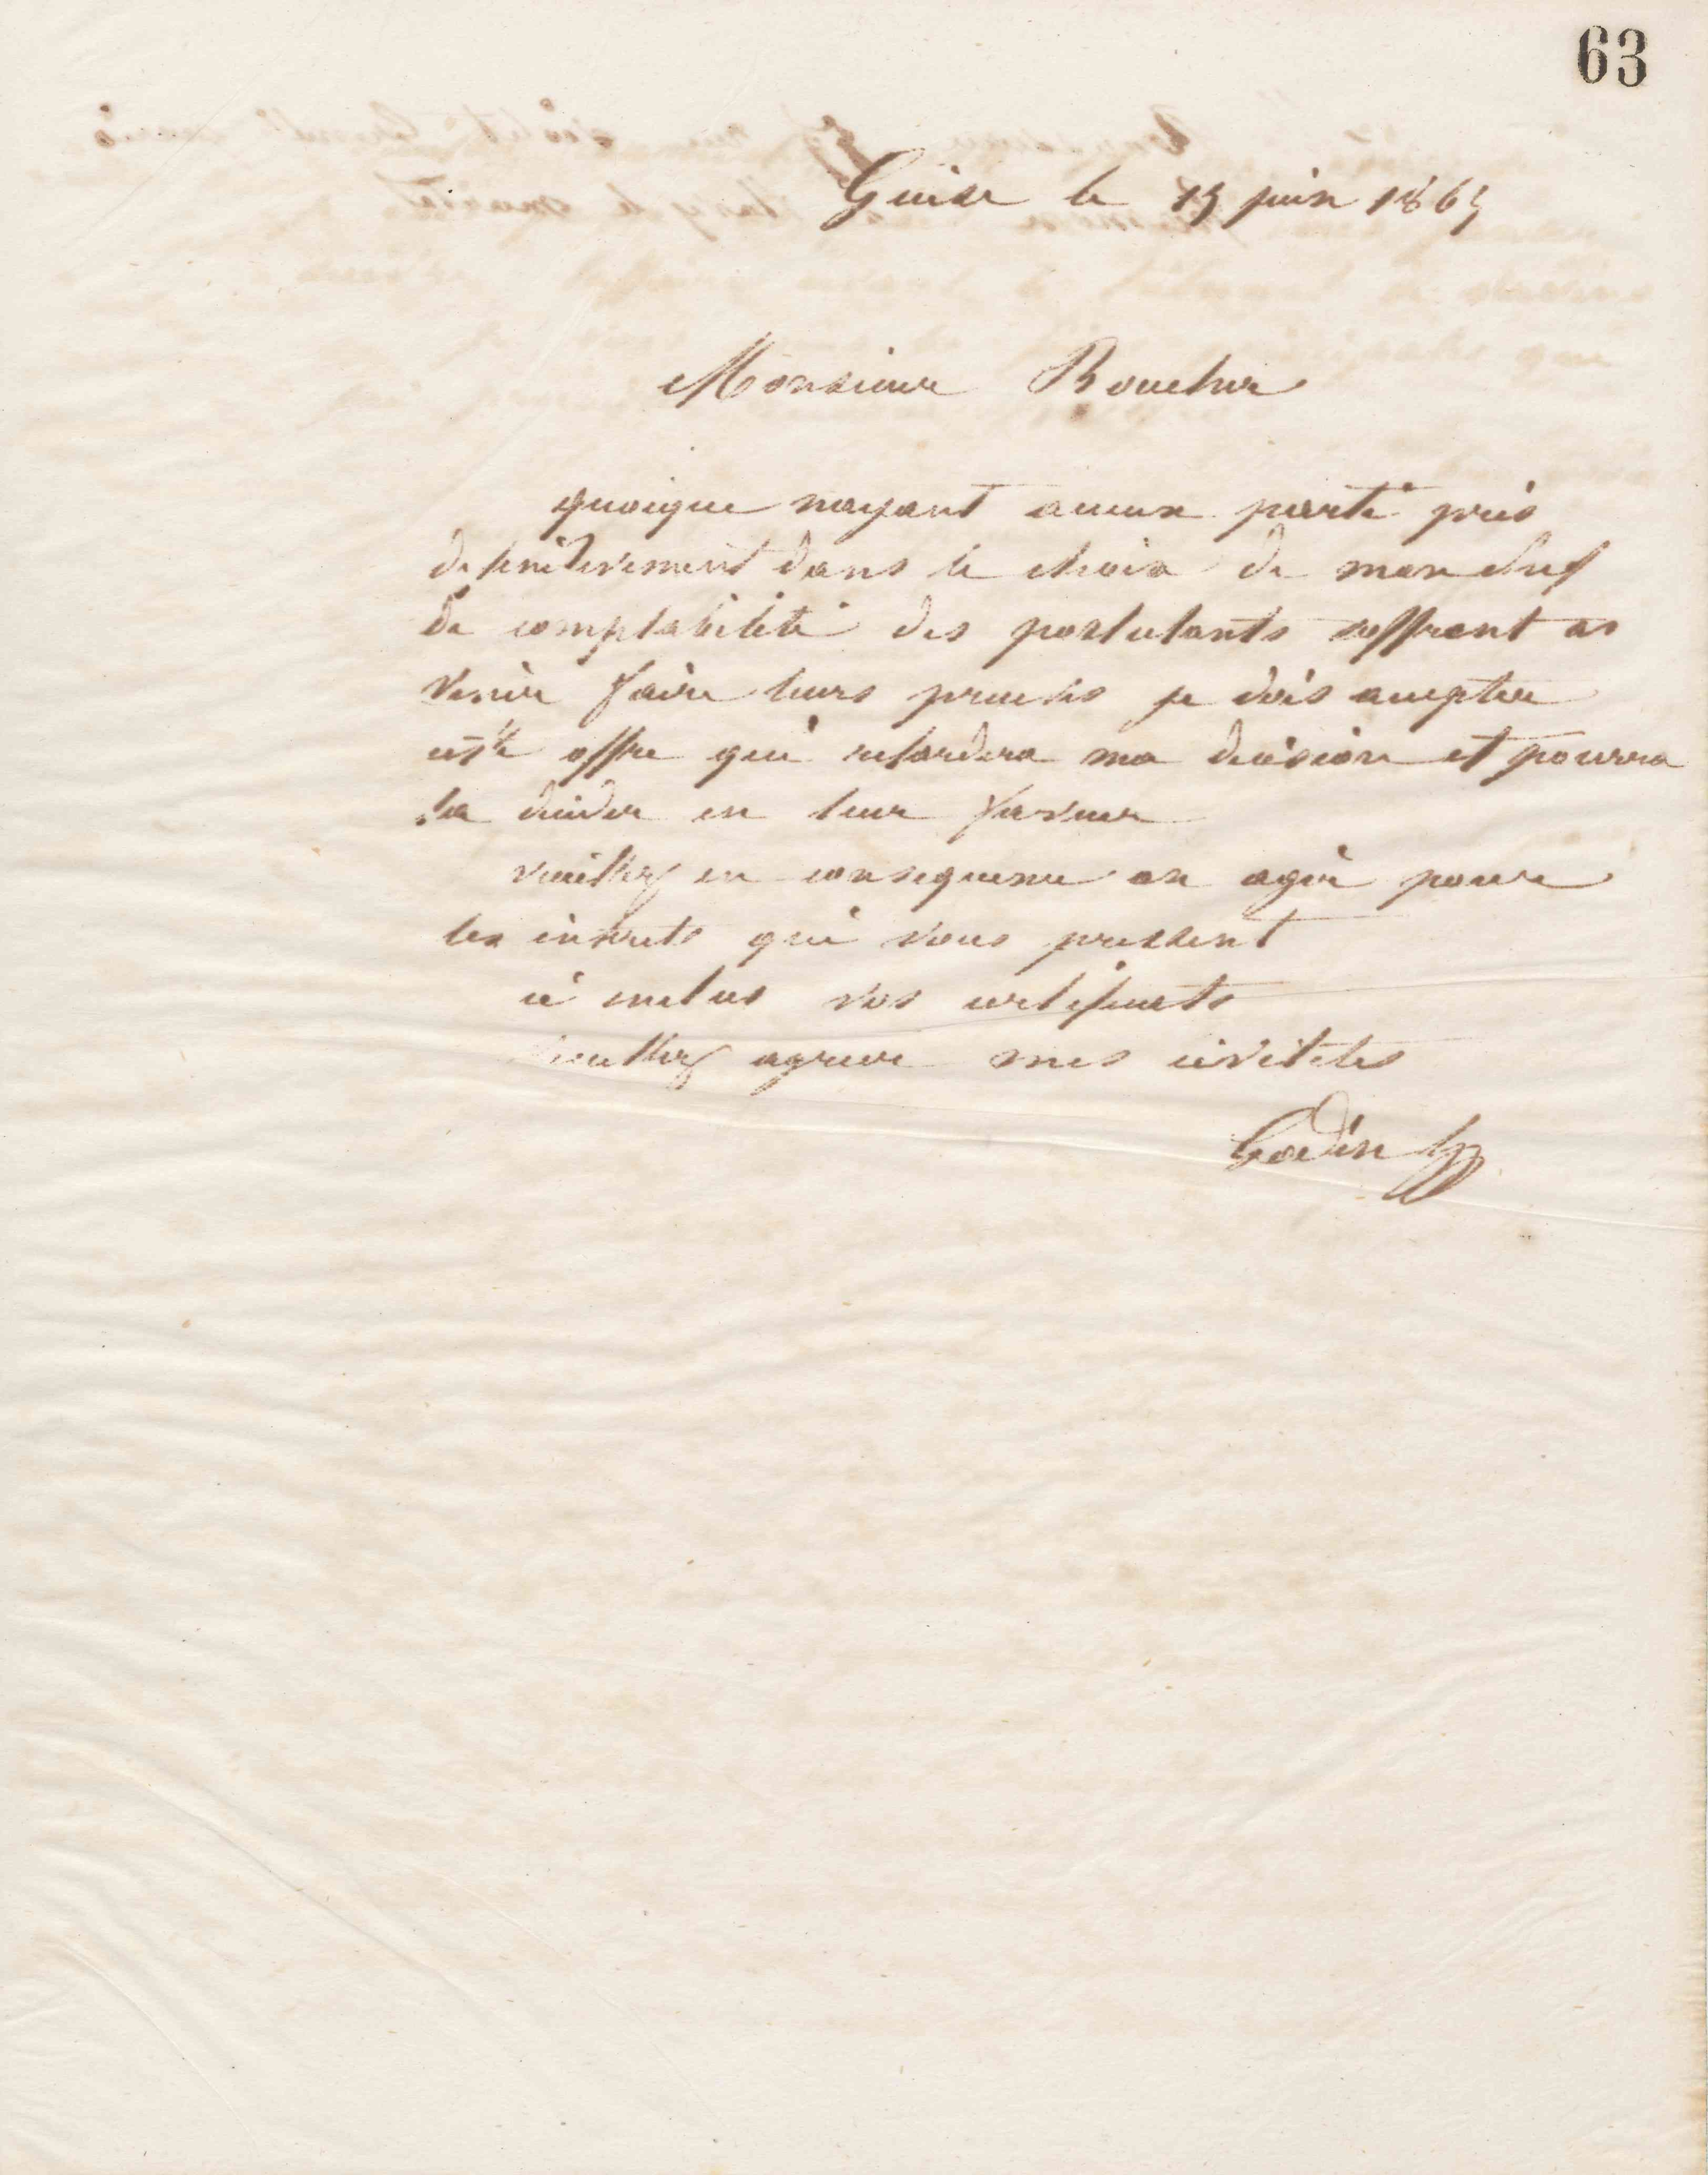 63
Guise le 15 juin 1865
Monsieur Boucher
quoique nayant aucun parti pris
definitivement dans le choix de mon chef
de comptabilité des postulants soffrent a
venir faire leurs preuves je dois accepter
cette offre qui retardera ma decision et pourra
la decider en leur faveur
veuillez en consequence en agir pour
les interets qui vous pressent
ci inclus vos certificats
veuillez agreer mes civilites
Godin